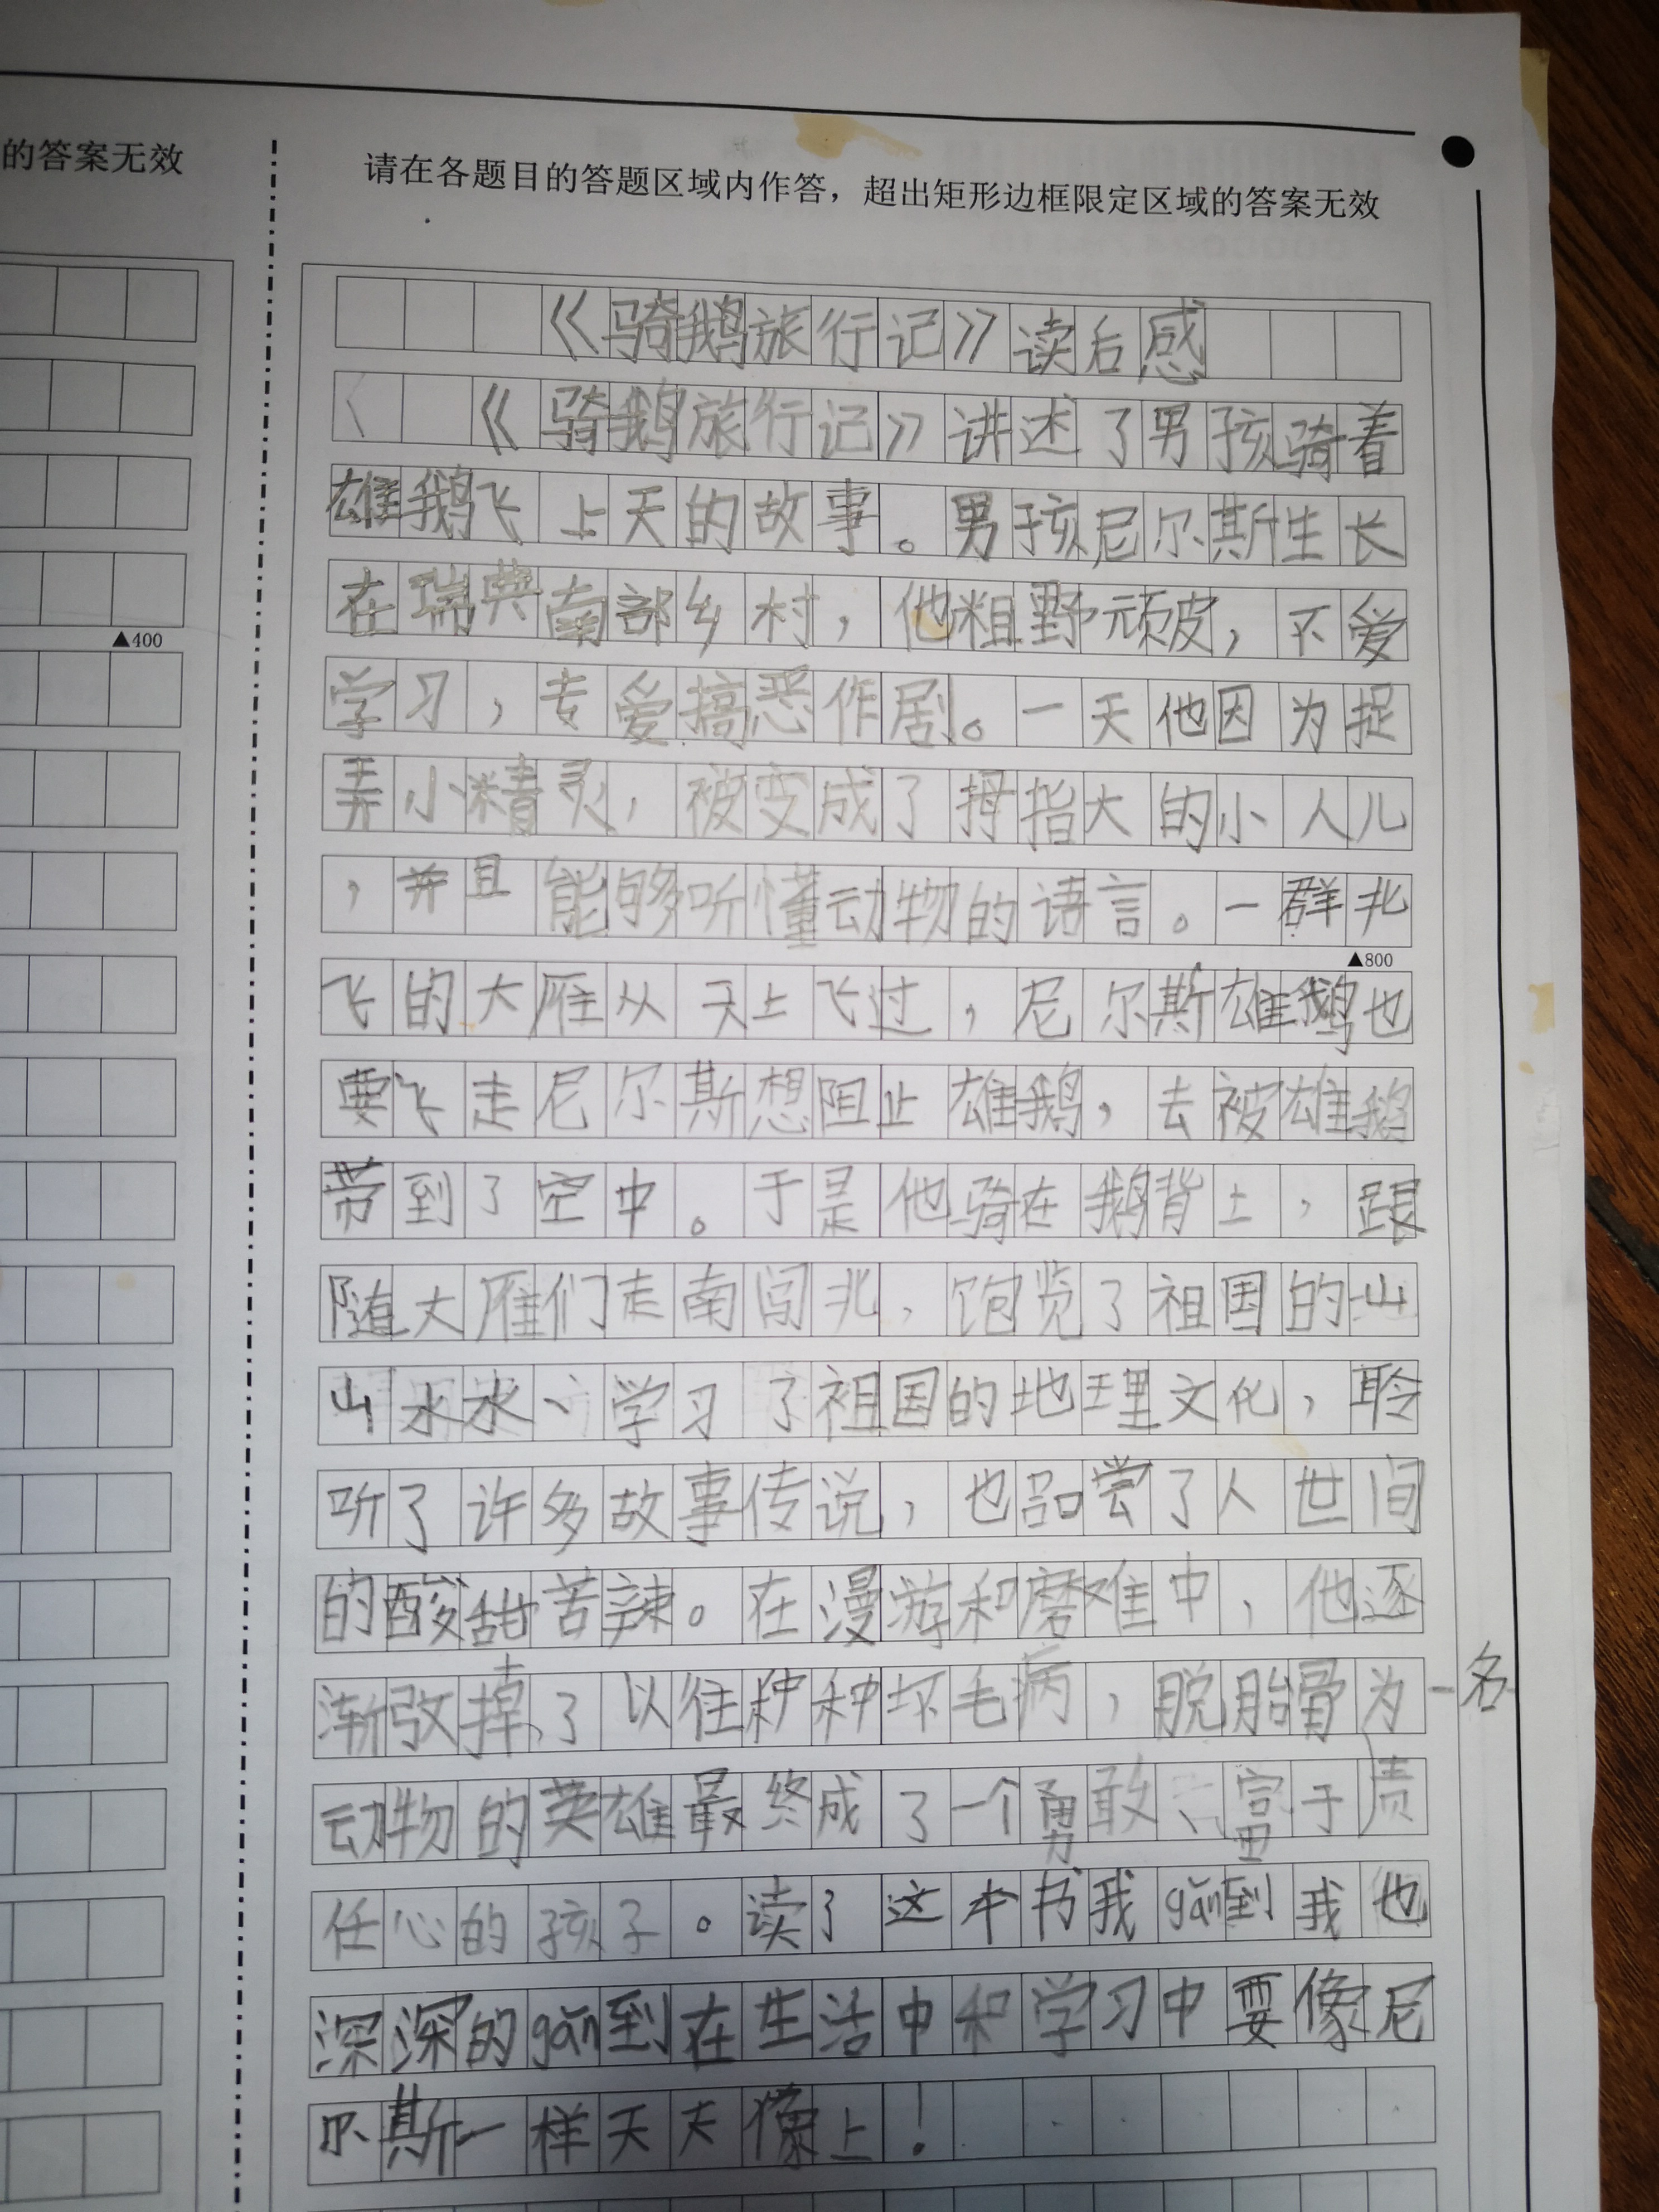 的答案无效
请在各题目的答题区域内作答，超出矩形边框限定区域的答案无效
《骑鹅旅行记》读后感
《骑鹅旅行记》讲述了男孩骑着
雄鹅飞上天的故事。男孩尼尔斯生长
在瑞典南部乡村，他粗野顽皮，不爱
▲400
学习，专爱搞恶作剧。一天他因为捉
弄小精灵，被变成了拇指大的小人儿
，并且能够听懂动物的语言。一群北
▲800
飞的大雁从天上飞过，尼尔斯雄鹅也
要飞走尼尔斯想阻止雄鹅，去被雄鹅
带到了空中。于是他骑在鹅背上，跟
随大雁们走南闯北，饱览了祖国的山
山水水、学习了祖国的地理文化，聆
听了许多故事传说，也品尝了人世间
的酸甜苦辣。在漫游和磨难中，他逐
渐改掉了以往种种坏毛病，脱胎骨为一名
动物的英雄最终成了一个勇敢富于责
任心的孩子。读了这本书我gǎn到我也
深深的gǎn到在生活中和学习中要像尼
尔斯一样天天像上！